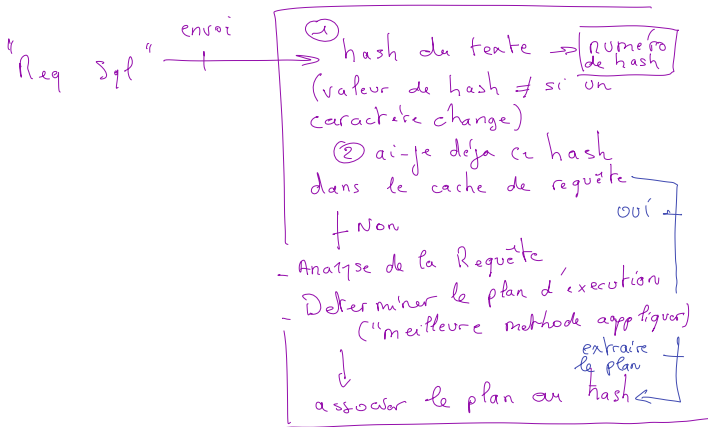 envoi
"Req Sql"
① hash du texte → numéro
de hash
(valeur de hash ≠ si un
caractère change)
② ai-je déja ce hash
dans le cache de requête
oui
Non
- Analyse de la Requête
- Determiner le plan d'éxecution
("meilleure methode a appliquer)
extraire
le plan
associer le plan au hash